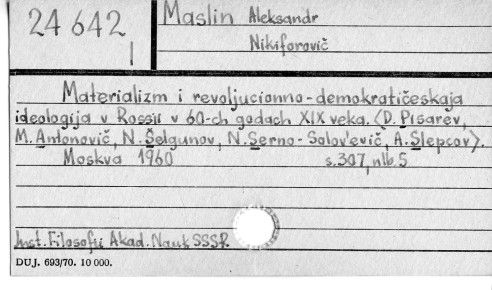 24 642
I
Maslin Aleksandr
Nikiforovič
Materializm i revoljucionno-demokratičeskaja
ideologija v Rossii v 60-ch godach XIX veka. (D. Pisarev,
M. Antonovič, N. Šelgunov, N. Serno-Solov'evič, A. Slepcov).
Moskva 1960 s. 307, nlb. 5
Inst. Filosofii Akad. Nauk SSSR.
DUJ. 693/70. 10 000.